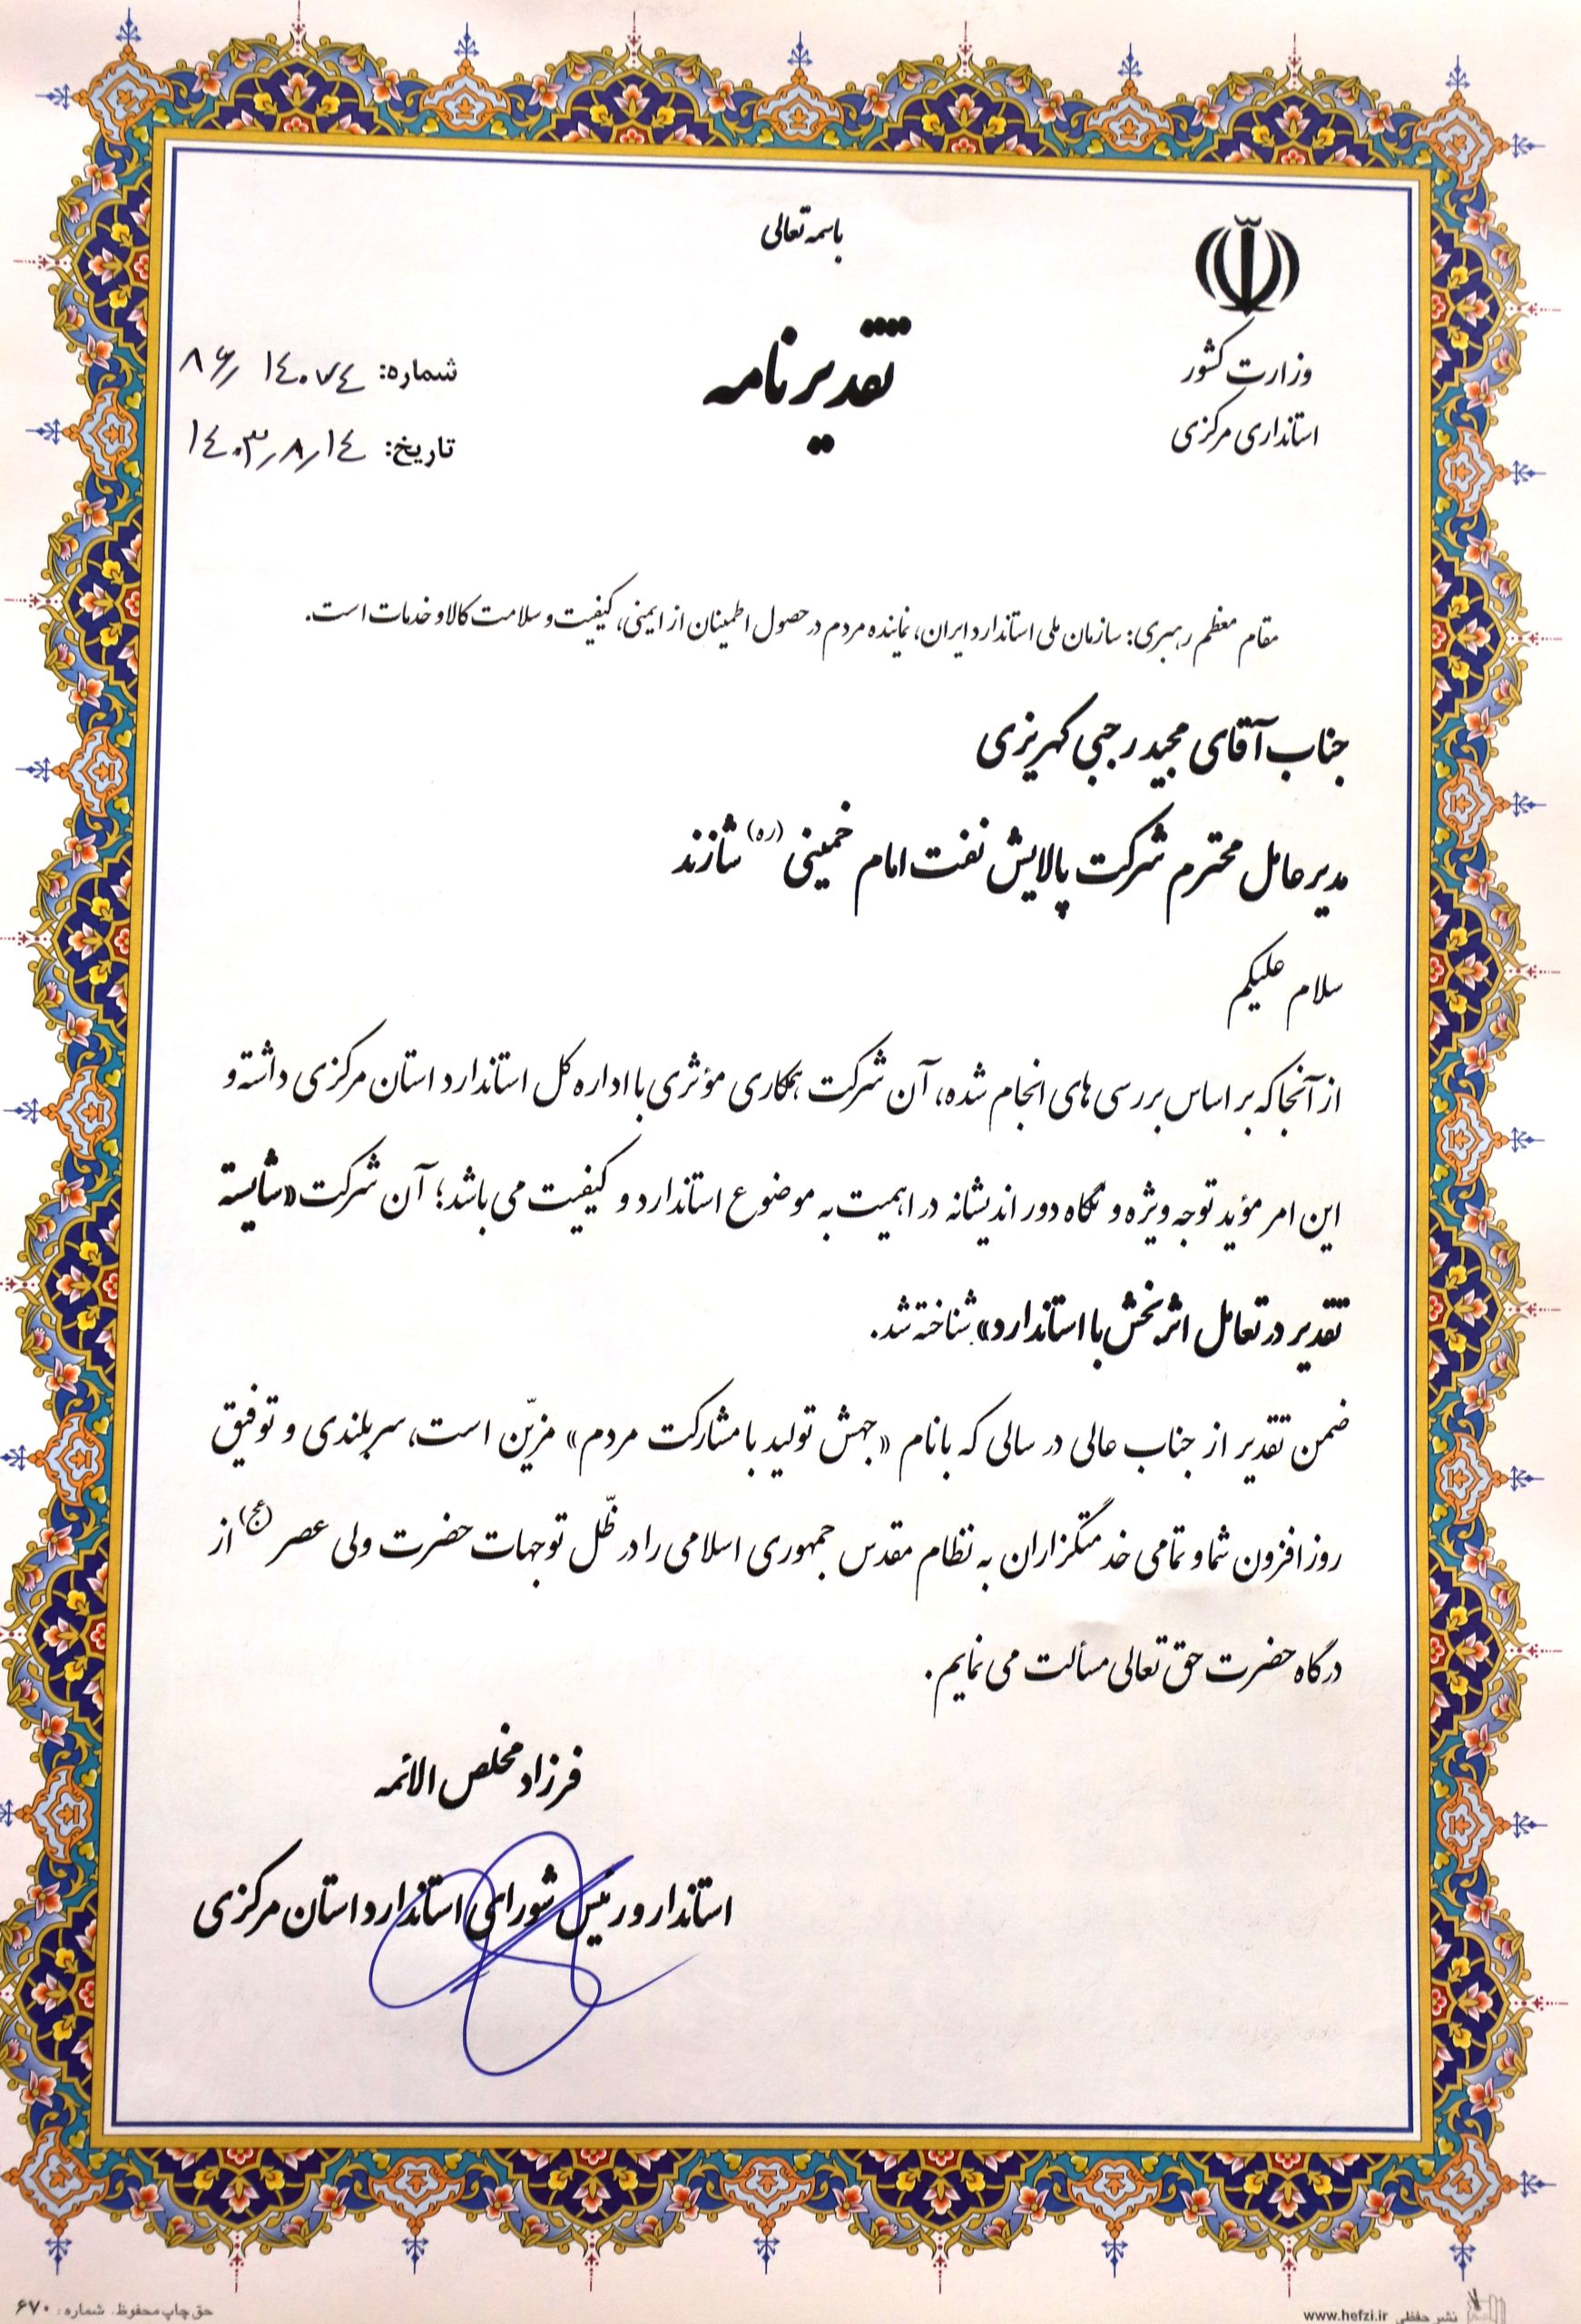 باسمه تعالی
وزارت کشور
استانداری مرکزی
تقدیرنامه
شماره: ۸۶/ ۱۴۰۷۴
تاریخ: ۱۴۰۳/۸/۱۴
مقام معظم رهبری: سازمان ملی استاندارد ایران، نماینده مردم در حصول اطمینان از ایمنی، کیفیت و سلامت کالا و خدمات است.
جناب آقای مجید رجبی کهریزی
مدیر عامل محترم شرکت پالایش نفت امام خمینی (ره) شازند
سلام علیکم
از آنجا که بر اساس بررسی های انجام شده، آن شرکت همکاری مؤثری با اداره کل استاندارد استان مرکزی داشته و
این امر مؤید توجه ویژه و نگاه دور اندیشانه در اهمیت به موضوع استاندارد و کیفیت می باشد؛ آن شرکت «شایسته
تقدیر در تعامل اثربخش با استاندارد» شناخته شد.
ضمن تقدیر از جناب عالی در سالی که با نام «جهش تولید با مشارکت مردم» مزیّن است، سربلندی و توفیق
روزافزون شما و تمامی خدمتگزاران به نظام مقدس جمهوری اسلامی را در ظلّ توجهات حضرت ولی عصر (عج) از
درگاه حضرت حق تعالی مسألت می نمایم.
فرزاد مخلص الائمه
استاندار و رئیس شورای استاندارد استان مرکزی
حق چاپ محفوظ. شماره: ۶۷۰
نشر حفظی www.hefzi.ir